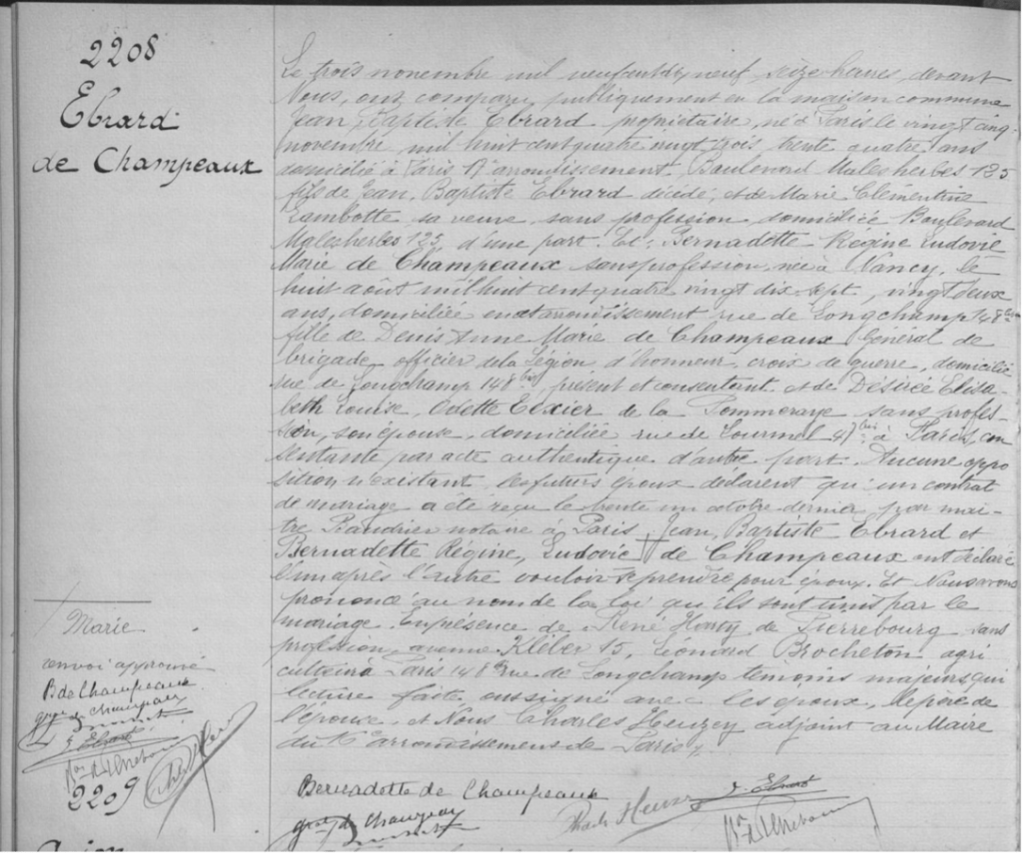 2208
Ebrard
de Champeaux
Le trois novembre mil neuf cent dix neuf, seize heures, devant
Nous, ont comparu publiquement en la maison commune
Jean Baptiste Ebrard propriétaire, né à Paris le vingt cinq
novembre mil huit cent quatre vingt trois, trente quatre ans
domicilié à Paris arrondissement, Boulevard Malesherbes 125
fils de Jean Baptiste Ebrard décédé, et de Marie Clémentine
Lambotte sa veuve, sans profession domiciliée Boulevard
Malesherbes 125, d'une part. Et: Bernadette Régine Ludovic
Marie de Champeaux sans profession, née à Nancy, le
huit août mil huit cent quatre vingt dix sept, vingt deux
ans, domiciliée en cet arrondissement rue de Longchamp 148 bis
fille de Denis Anne Marie de Champeaux Général de
brigade, officier de la Légion d'honneur, croix de guerre, domicilié
rue de Longchamp 148 bis, présent et consentant et de Désirée Elisa-
beth Louise Odette Texier de la Pommeraye sans profes-
sion, son épouse, domiciliée rue de Lourmel 47 bis à Paris, con
sentante par acte authentique d'autre part. Aucune oppo
sition n'existant, les futurs époux déclarent qu'un contrat
de mariage a été reçu le trente un octobre dernier par maî-
tre notaire à Paris. Jean Baptiste Ebrard et
Bernadette Régine, Ludovic de Champeaux ont déclaré
l'un après l'autre vouloir se prendre pour époux. Et Nous avons
prononcé au nom de la loi qu'ils sont unis par le
mariage. En présence de René de Pierrebourg sans
profession, avenue Kléber 15, Léonard Brocheton agri
culteur à Paris 148 bis rue de Longchamp témoins majeurs qui
lecture faite, ont signé avec les époux, le père de
l'épouse, et Nous Charles Heuzey adjoint au Maire
du 16e arrondissement de Paris
Marie
renvoi approuvé
B de Champeaux
de Champeaux
J. Ebrard
2209
Bernadette de Champeaux
Charles Heuzey
J. Ebrard
de Champeaux